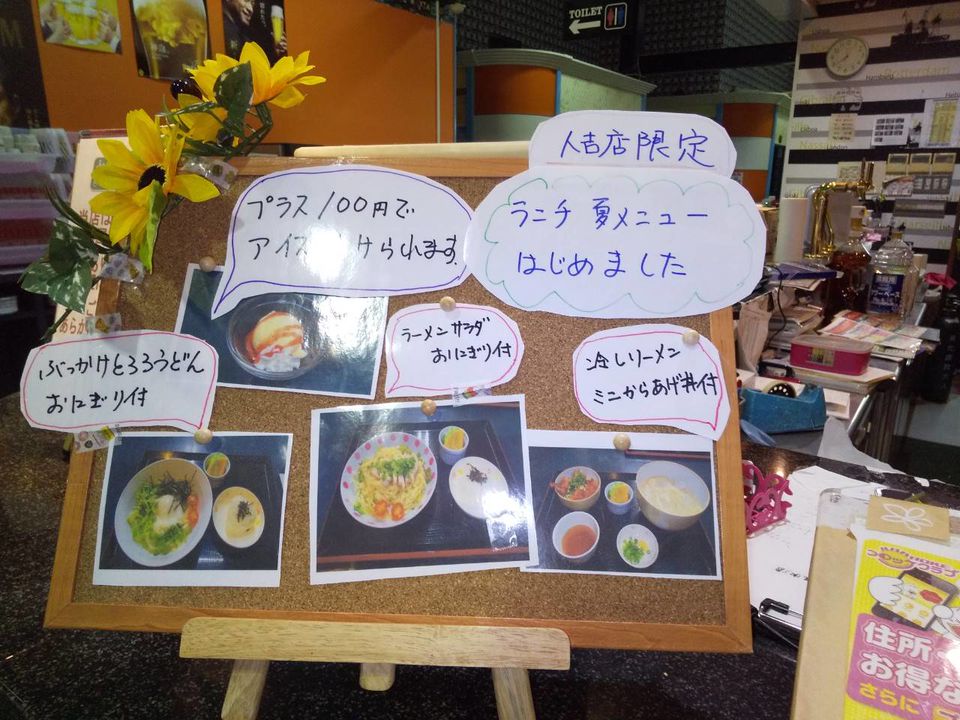 TOILET
人吉店限定
ランチ 夏メニュー
はじめました
プラス100円で
アイス けられます
ラーメンサラダ
おにぎり付
冷しラーメン
ミニからあげ丼付
ぶっかけとろろうどん
おにぎり付
Hamburg
住所
お得な
さらに